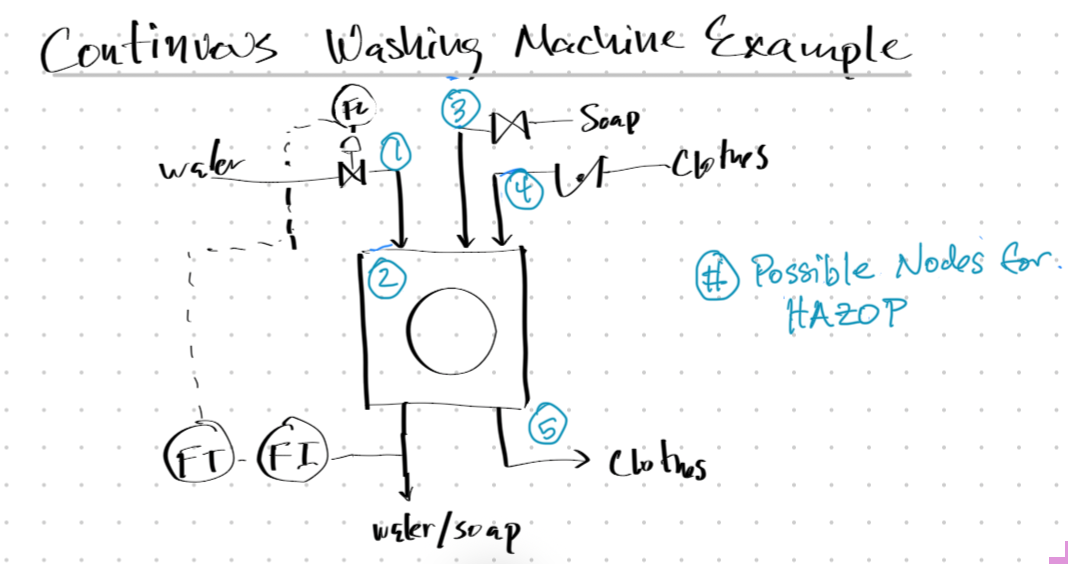 Continuous Washing Machine Example
FC
3
Soap
water
1
Clothes
4
2
# Possible Nodes for
HAZOP
5
FT
FI
Clothes
water/soap